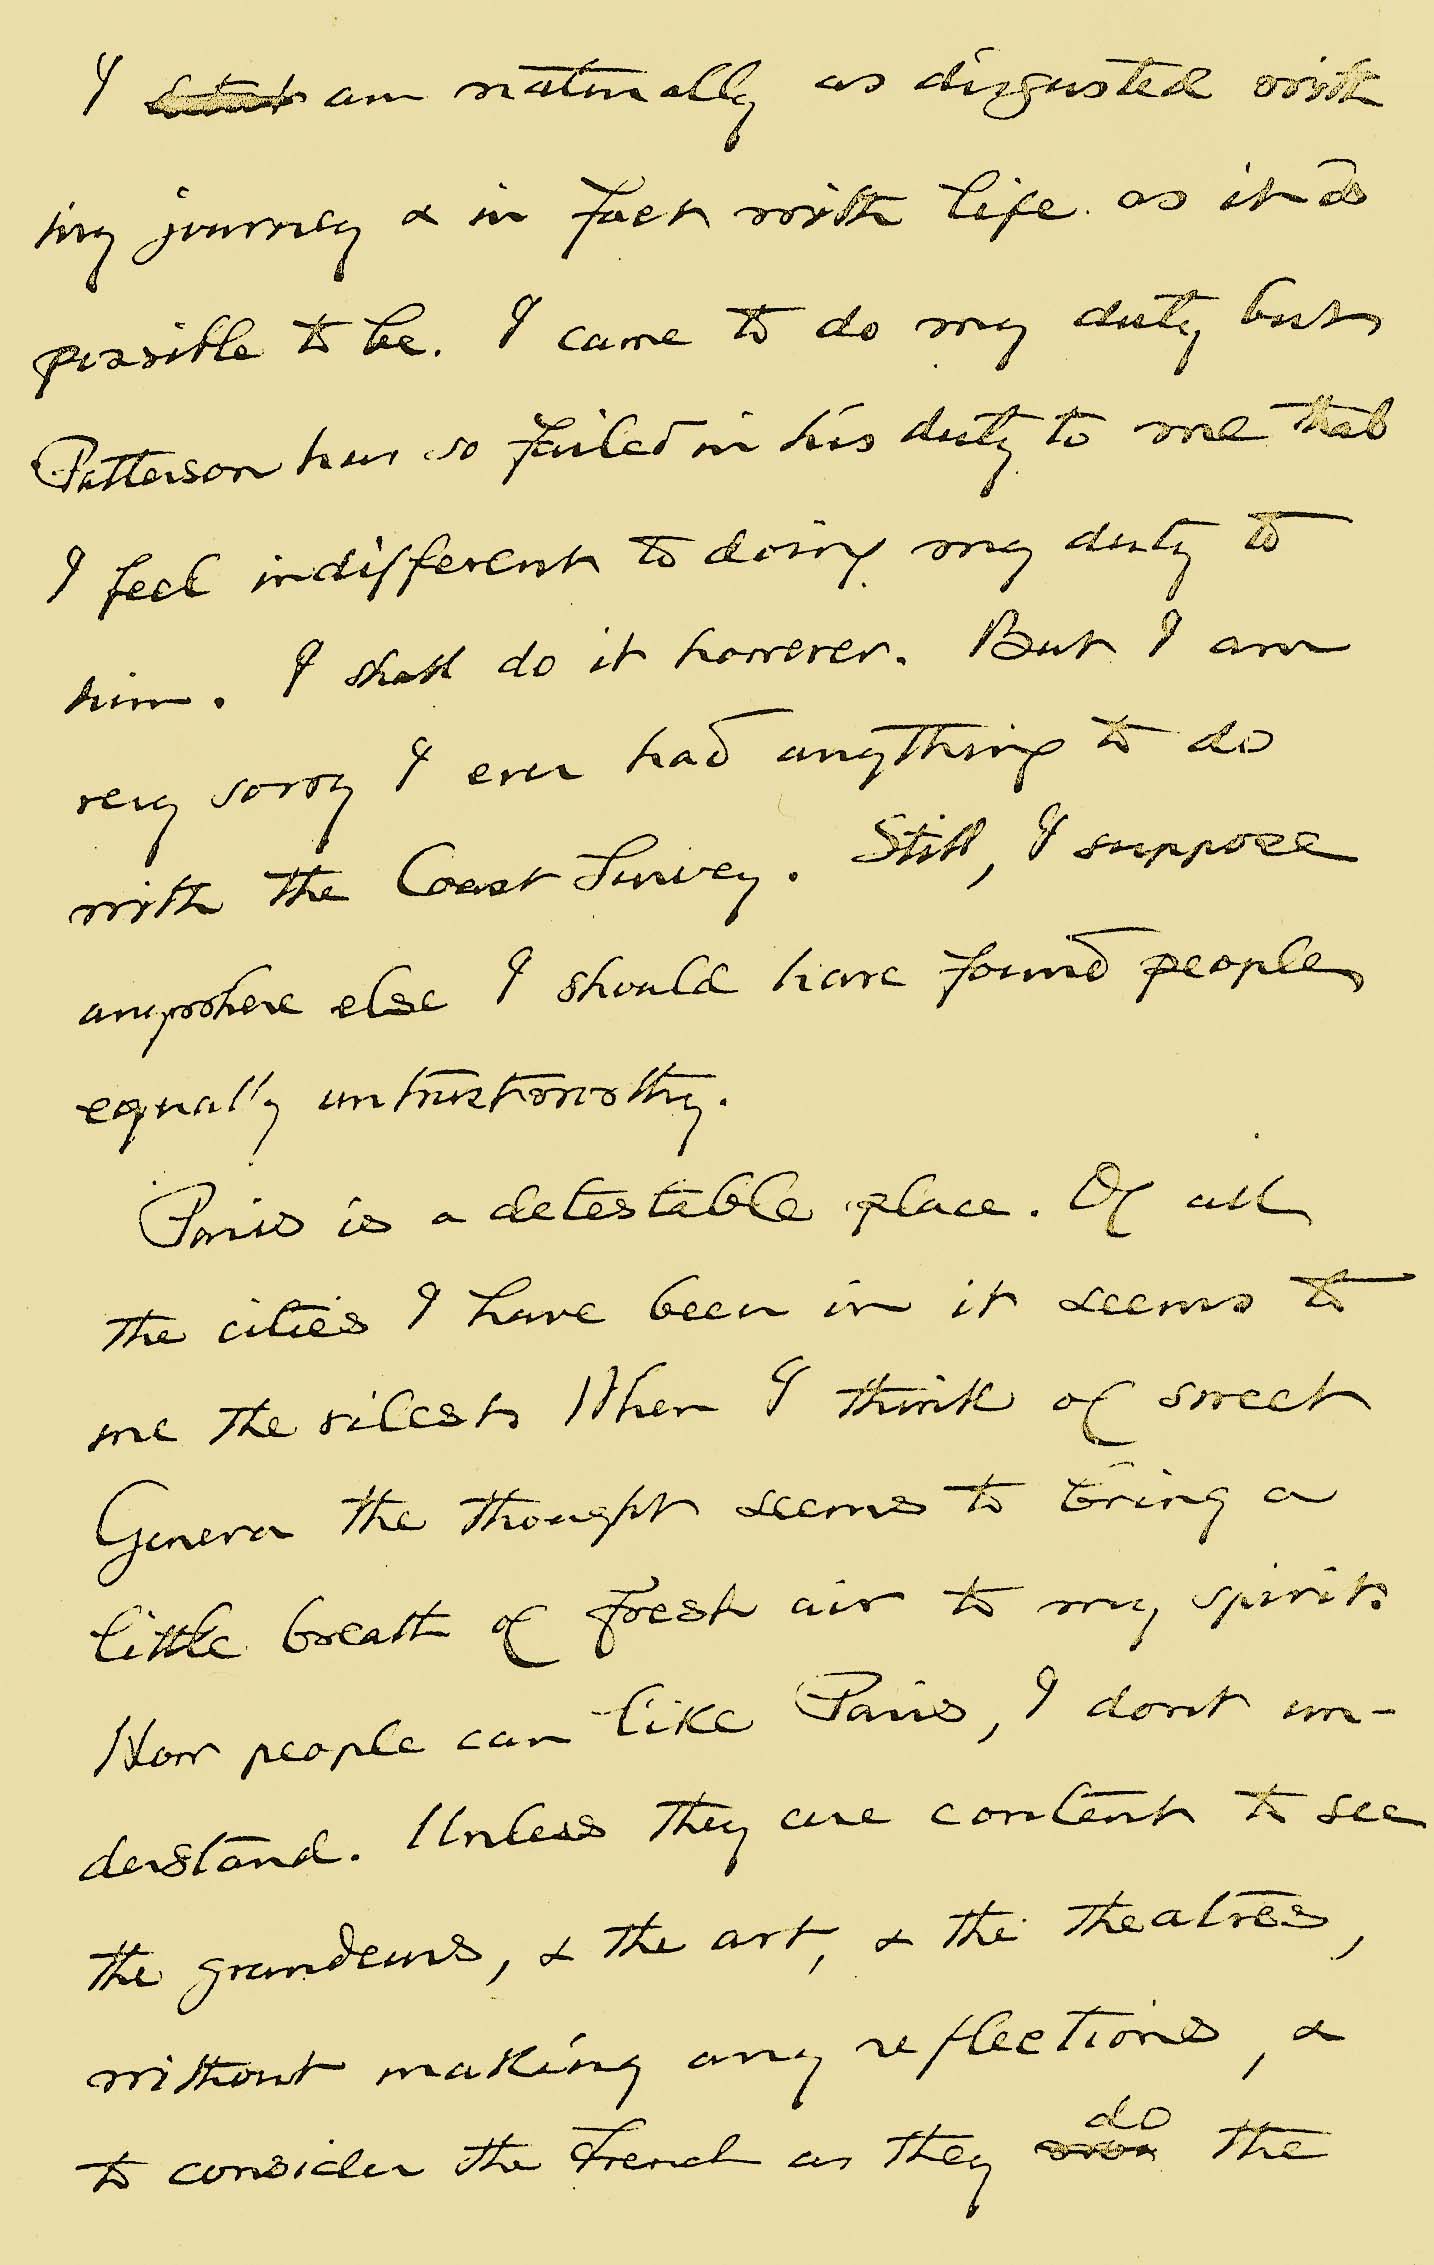 I am naturally as disgusted with
my journey & in fact with life as it is
possible to be. I came to do my duty but
Patterson has so failed in his duty to me that
I feel indifferent to doing my duty to
him. I shall do it however. But I am
very sorry I ever had anything to do
with the Coast Survey. Still, I suppose
anywhere else I should have found people
equally untrustworthy.
Paris is a detestable place. Of all
the cities I have been in it seems to
me the vilest. When I think of sweet
Geneva the thought seems to bring a
little breath of fresh air to my spirit.
How people can like Paris, I dont un-
derstand. Unless they are content to see
the grandeurs, & the art, & the theatres,
without making any reflections, &
to consider the French as they do the